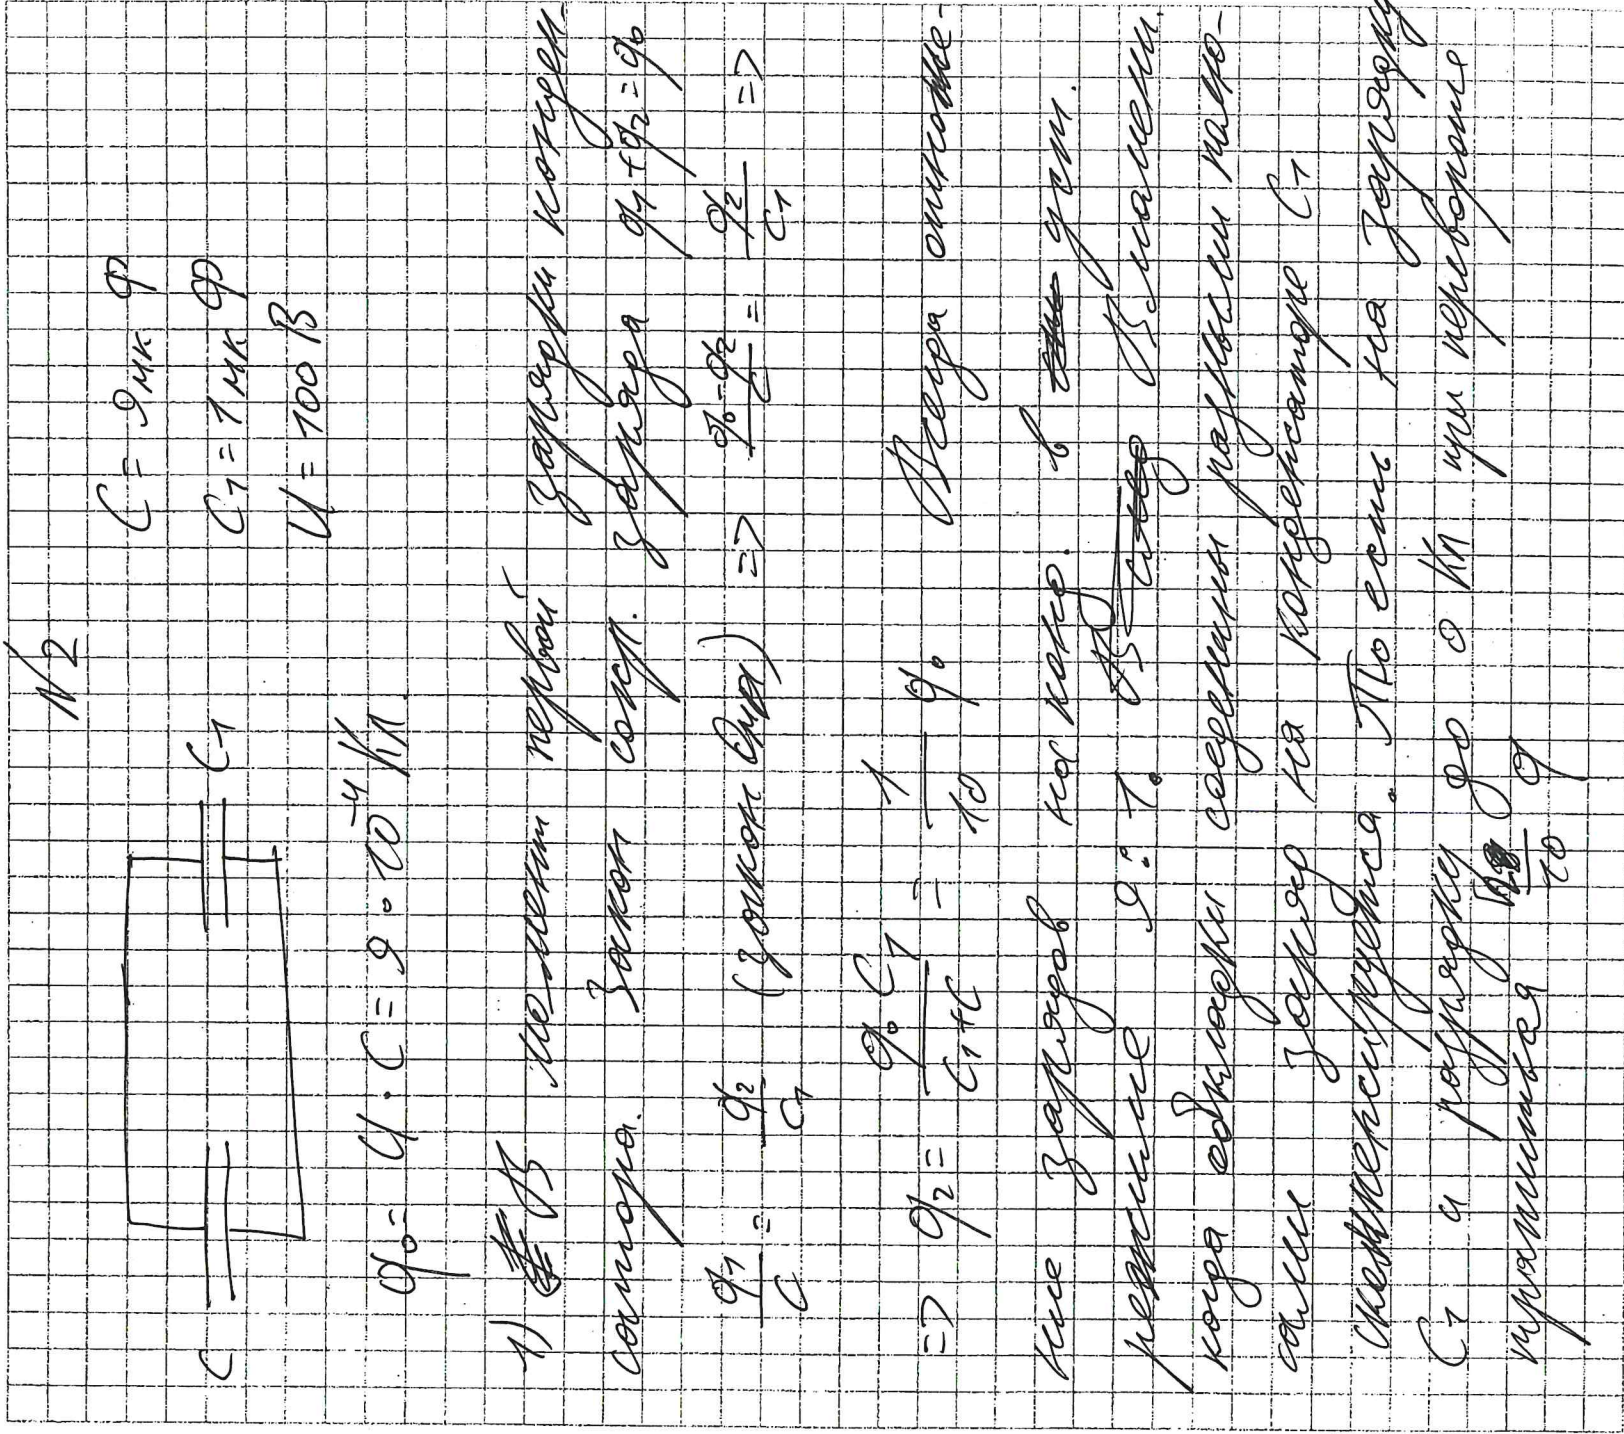 N2
C = 9 мк Ф
C1 = 1 мк Ф
U = 100 В
C C1
q0 = U · C = 9 · 10⁻⁴ Кл.
1) В момент первой зарядки конден-
сатора. Закон сохр. заряда q1 + q2 = q0
q1/C = q2/C1 (закон Ома) => (q0 - q2)/C = q2/C1 =>
=> q2 = q0 C1/(C1 + C) = 1/10 q0 Всегда отноше-
ние зарядов на конд. в уст.
режиме 9 : 1. В моменты.
когда обкладки соединены разными полю-
сами заряд на конденсаторе C1
скомпенсируется. То есть на зарядку
C1 и разрядку до 0 Кл при перевороте
тратиться q/10